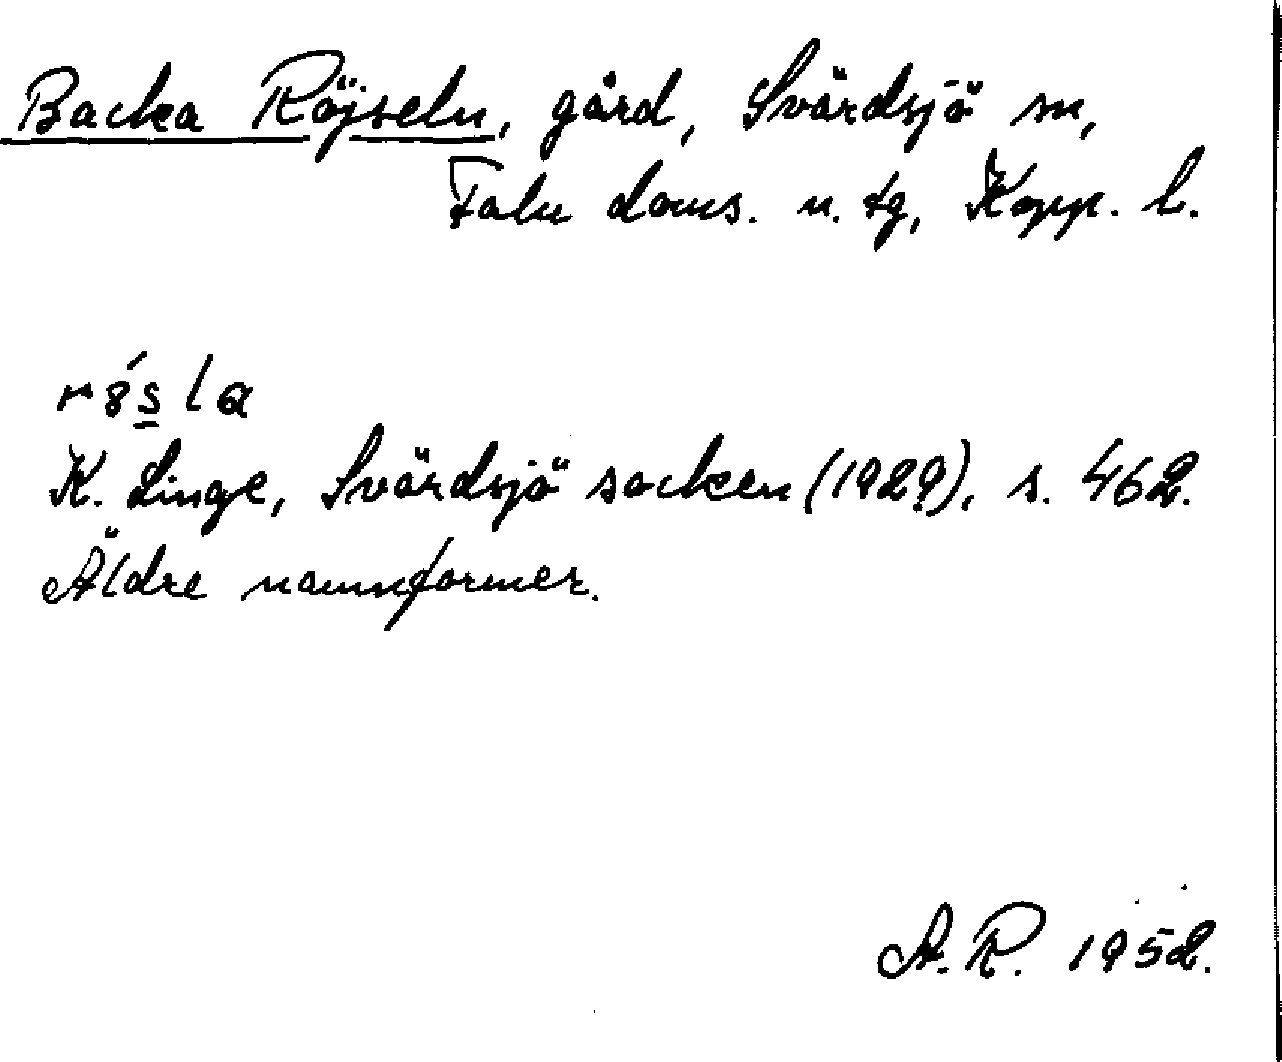 Backa Röjseln, gård, Svärdsjö sn,
Falu doms. n. tg, Kopp. l.
rȣ́s̲la
K. Linge, Svärdsjö socken (1929), s. 462.
Äldre namnformer.
A.R. 1952.